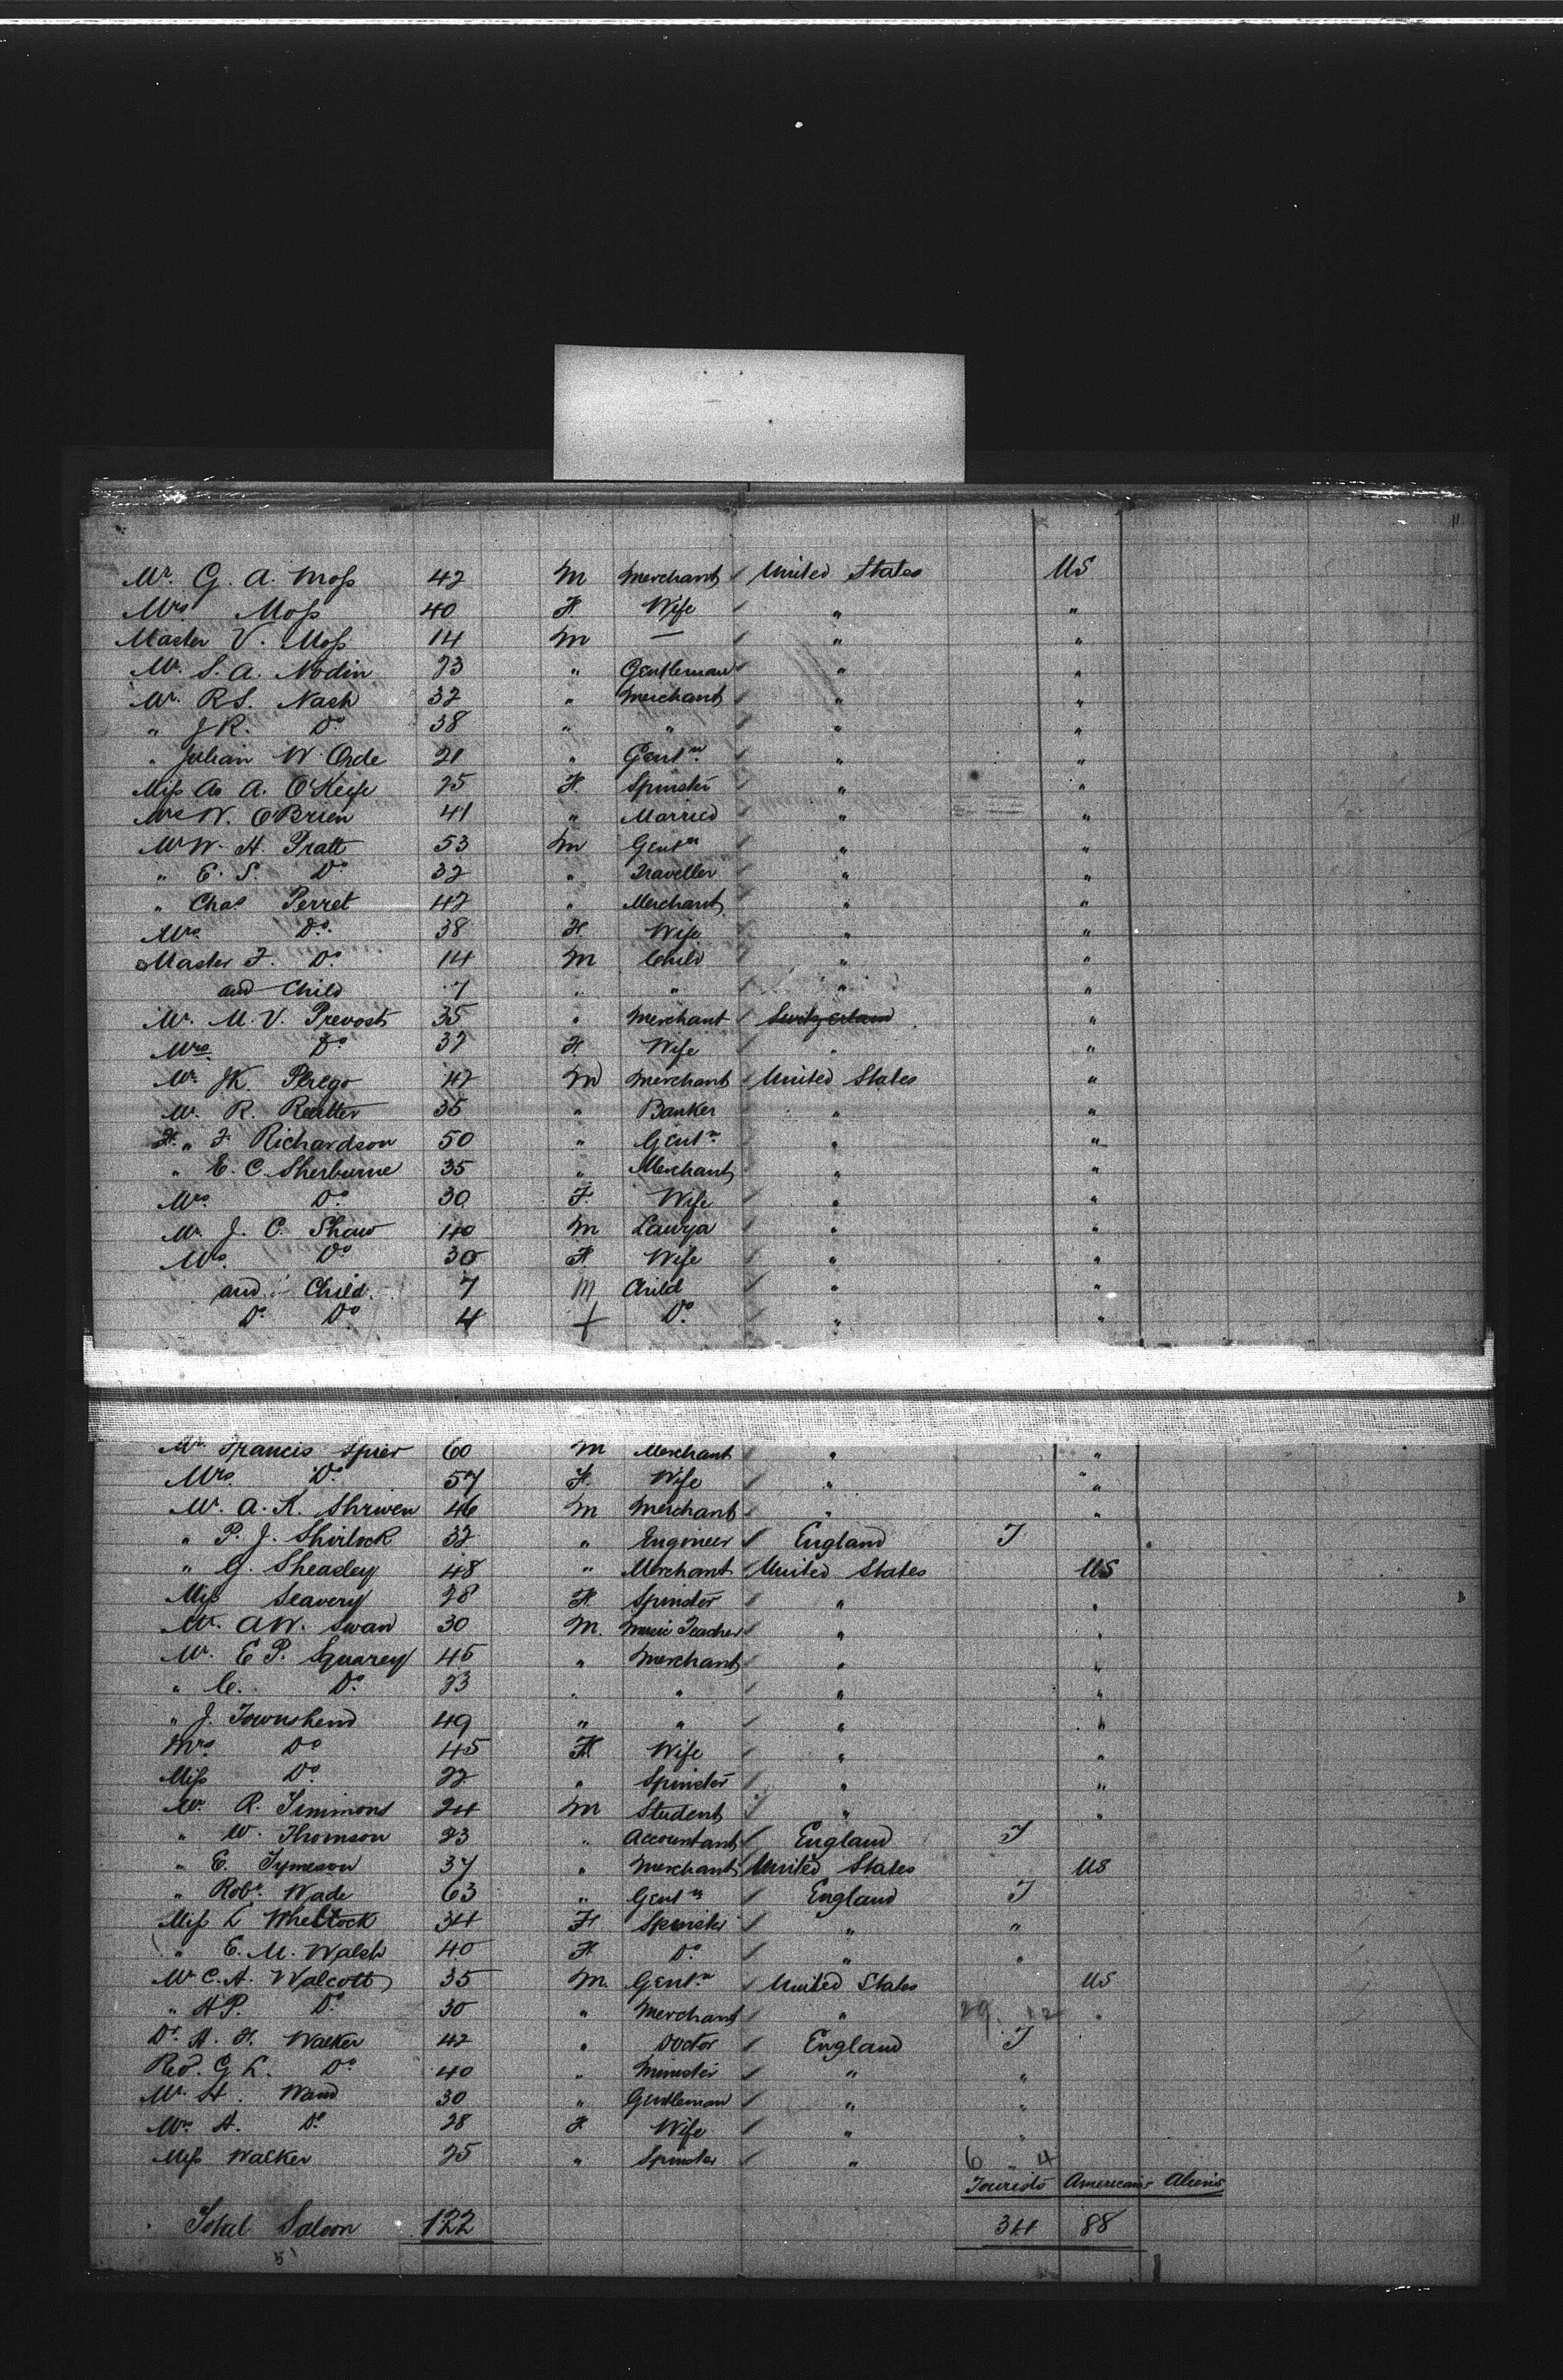 11
Mr. G. A. Moss 42 M Merchant United States US
Mrs Moss 40 F. Wife " "
Master V. Moss 14 M — " "
Mr. S. A. Nodin 23 " Gentleman " "
Mr. R S. Nash 32 " Merchant " "
" J R. Do 38 " " " "
" Julian W. Orde 21 " Gentn. " "
Miss A. O'Keefe 25 F. Spinster " "
Mrs W. O'Brien 41 " Married " "
Mr W. H. Pratt 53 M Gentn " "
" E. S. Do 32 " Traveller " "
" Chas Perret 42 " Merchant " "
Mrs Do. 38 F. Wife " "
Master F. Do. 14 M Child " "
and Child 7 " " " "
Mr. M. V. Prevost 35 " Merchant Switzerland "
Mrs. Do 32 F. Wife " "
Mr. J K. Perego 42 M Merchant United States "
Mr. R. 35 " Banker " "
" F Richardson 50 " Gentn. " "
" E. C. Sherburne 35 " Merchant " "
Mrs Do. 30 F. Wife " "
Mr. J. C. Shaw 40 M Lawya " "
Mrs. Do 30 F Wife " "
and Child. 7 M Child " "
Do Do. 4 Do. " "
Mr. Francis Spier 60 M Merchant " "
Mrs. Do. 57 F. Wife " "
Mr. A. K. Shriven 46 M Merchant " "
" P. J. Shirlock 32 " Engineer England T
" G. Sheasley 48 " Merchant United States US
Miss Seavery 28 F. Spinster " "
Mr. A W. Swan 30 M. Music Teacher " "
Mr. E P. Squarey 45 " Merchant " "
" C. Do. 23 " " " "
" J. Townshend 49 " " " "
Mrs. Do 45 F Wife " "
Miss Do. 22 " Spinster " "
Mr. R. Simmons 24 M Student " "
" W. Thomson 23 " Accountant England T
" E. Tymeson 37 " Merchant United States US
" Robt. Wade 63 " Gentn England T
Miss L Wheltock 34 F Spinster " "
" E. M. Walsh 40 F. Do. " "
Mr C. A. Walcott 35 M. Gentn United States US
" H P. Do. 30 " Merchant " 29. 12 "
Dr. A. F. Walker 42 " Doctor England T
Revd. G L. Do 40 " Minister " "
Mr. H. Wand 30 " Gentleman " "
Mrs H. Do. 28 F. Wife " "
Miss Walker 25 " Spinster " 6 " 4
Tourists Americans Aliens
Total Saloon 122 34 88
51